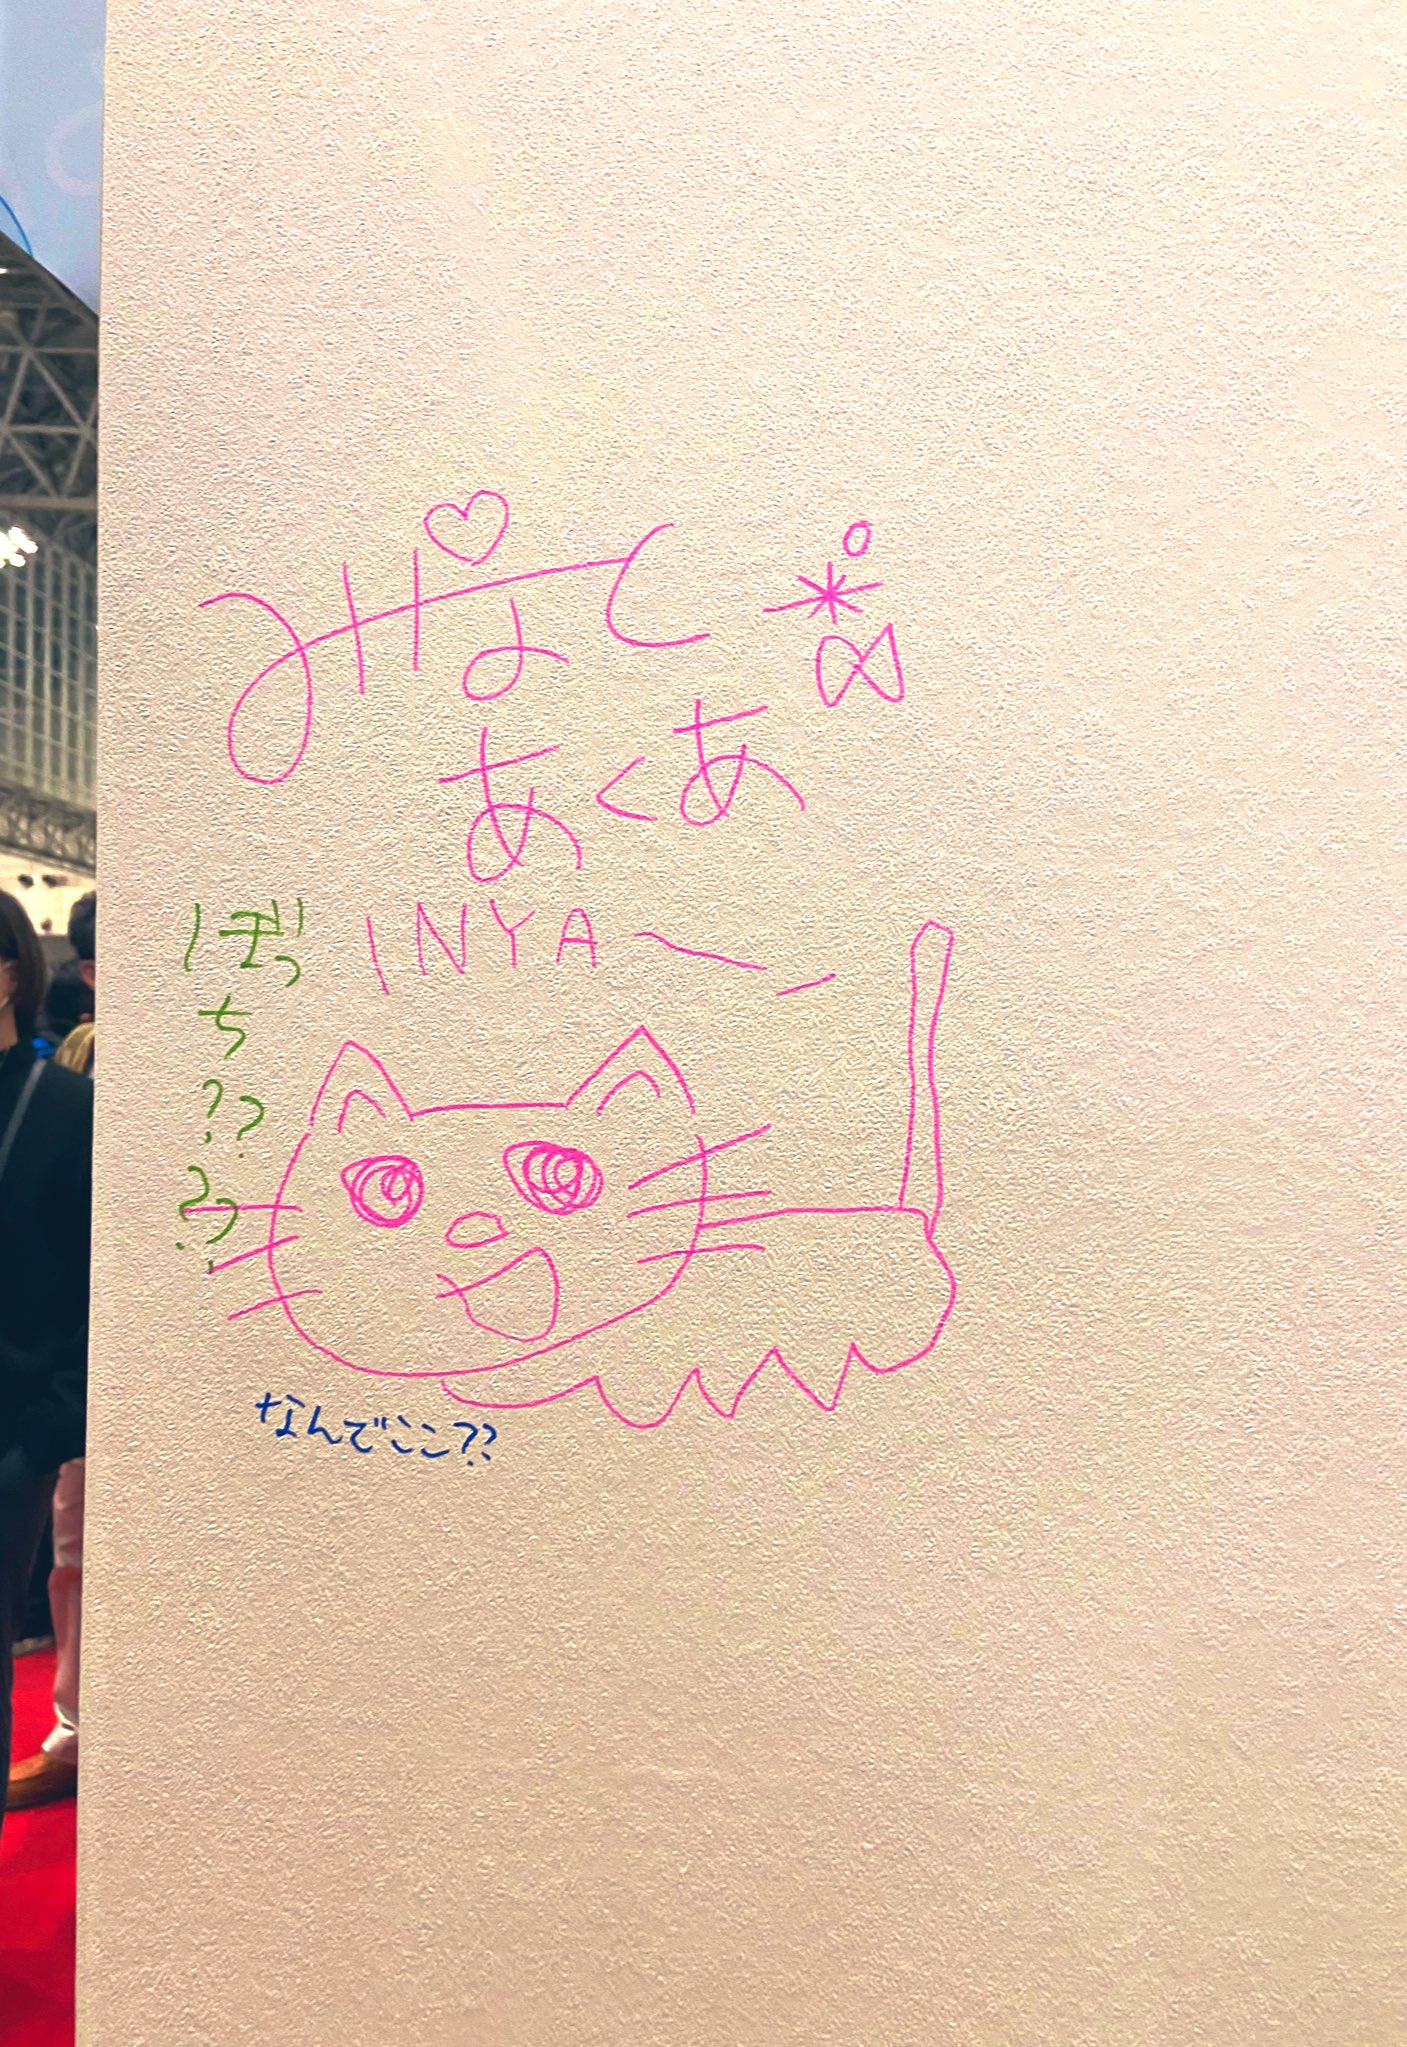 みなと
あくあ
INYA〜
ぼっ
ち
??
??
なんでここ??